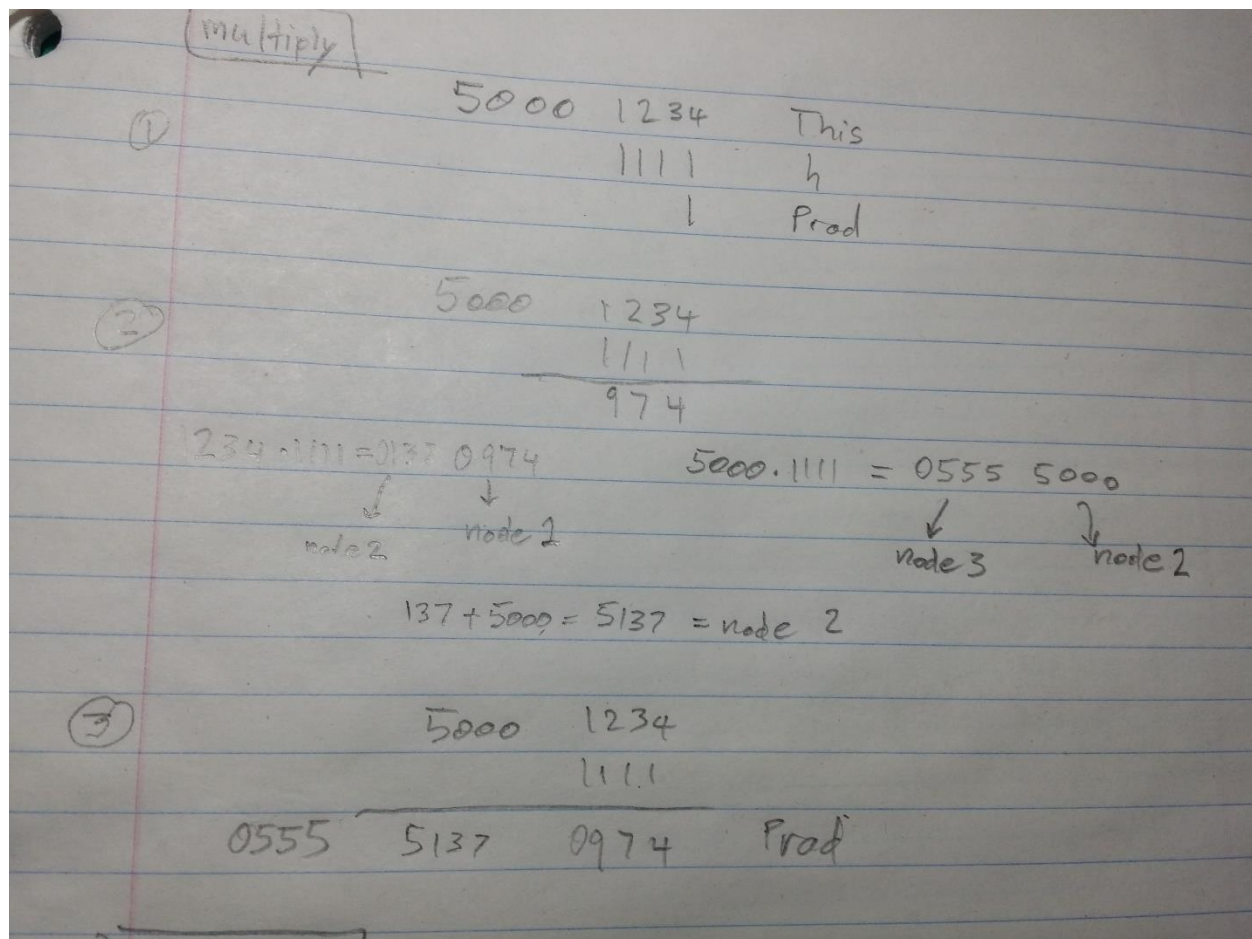 multiply
① 5000 1234 This
1111 h
1 Prod
② 5000 1234
1111
974
1234 · 1111 = 0137 0974
5000 · 1111 = 0555 5000
node 2 node 1
node 3 node 2
137 + 5000 = 5137 = node 2
③ 5000 1234
1111
0555 5137 0974 Prod